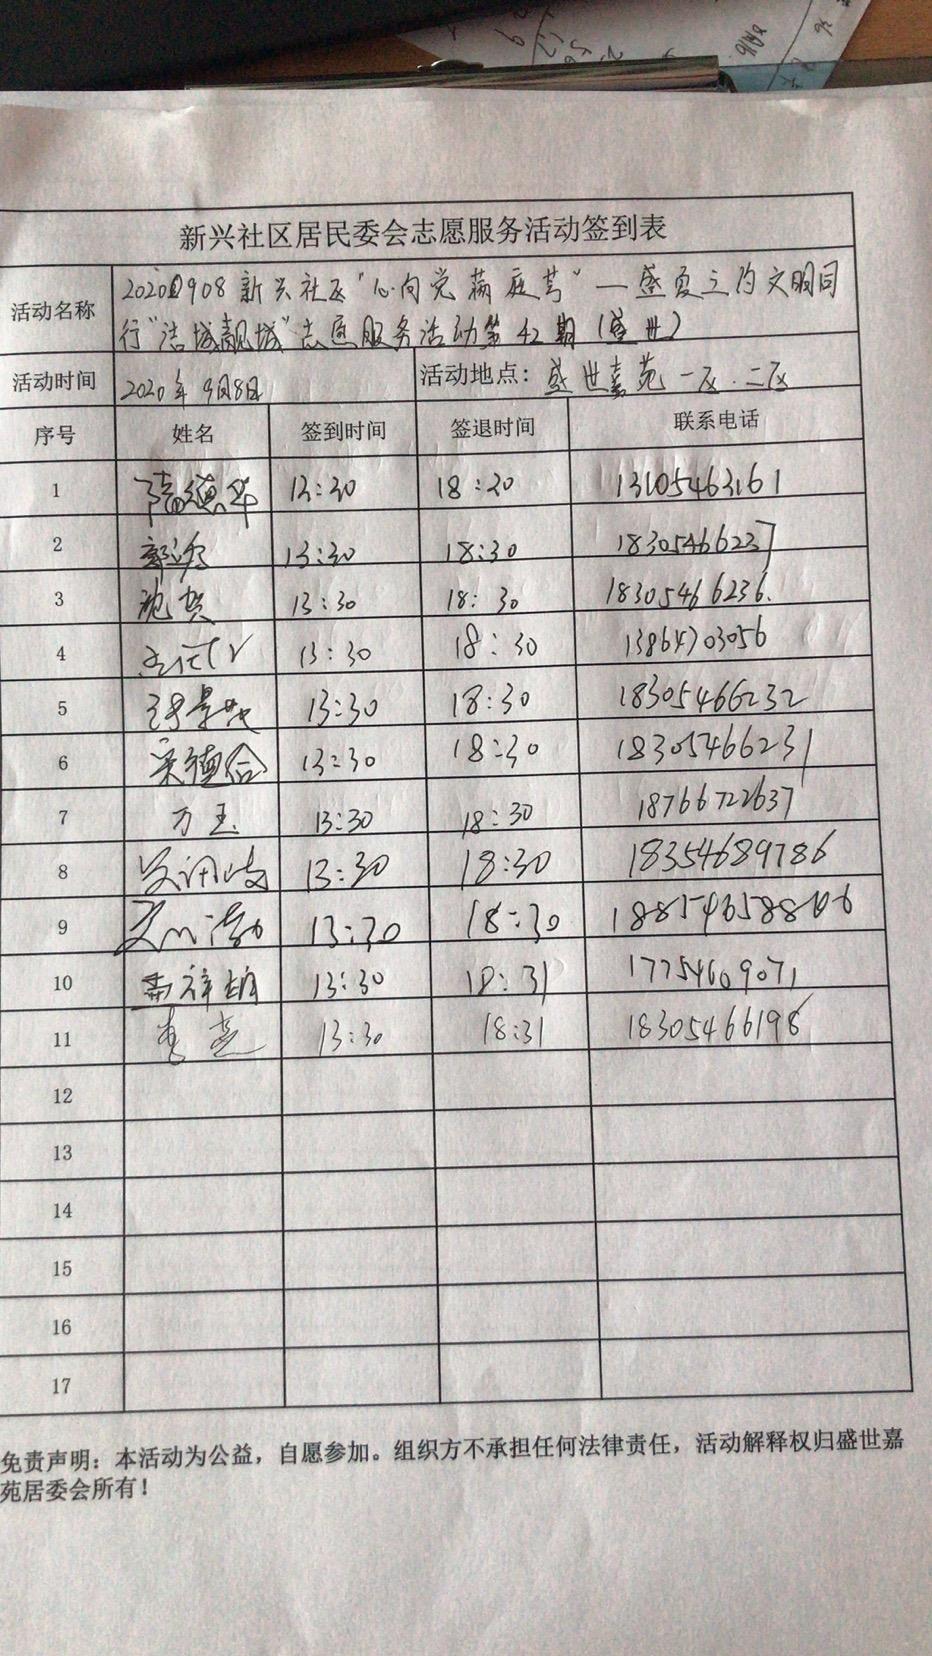 新兴社区居民委会志愿服务活动签到表
活动名称 20200908新兴社区"心向党 满庭芳"—盛夏之约文明同
行"洁城靓城"志愿服务活动第42期(盛世)
活动时间 2020年9月8日 活动地点: 盛世嘉苑一区.二区
序号 姓名 签到时间 签退时间 联系电话
1 隋德华 13:30 18:20 13105463161
2 13:30 18:30 18305466237
3 13:30 18:30 18305466236.
4 13:30 18:30 13864703056
5 13:30 18:30 18305466232
6 宋德合 13:30 18:30 18305466231
7 万玉 13:30 18:30 18766722637
8 13:30 18:30 18354689786
9 13:30 18:30
10 13:30 18:31 17754609071
11 李 13:30 18:31 18305466198
12
13
14
15
16
17
免责声明：本活动为公益，自愿参加。组织方不承担任何法律责任，活动解释权归盛世嘉
苑居委会所有！